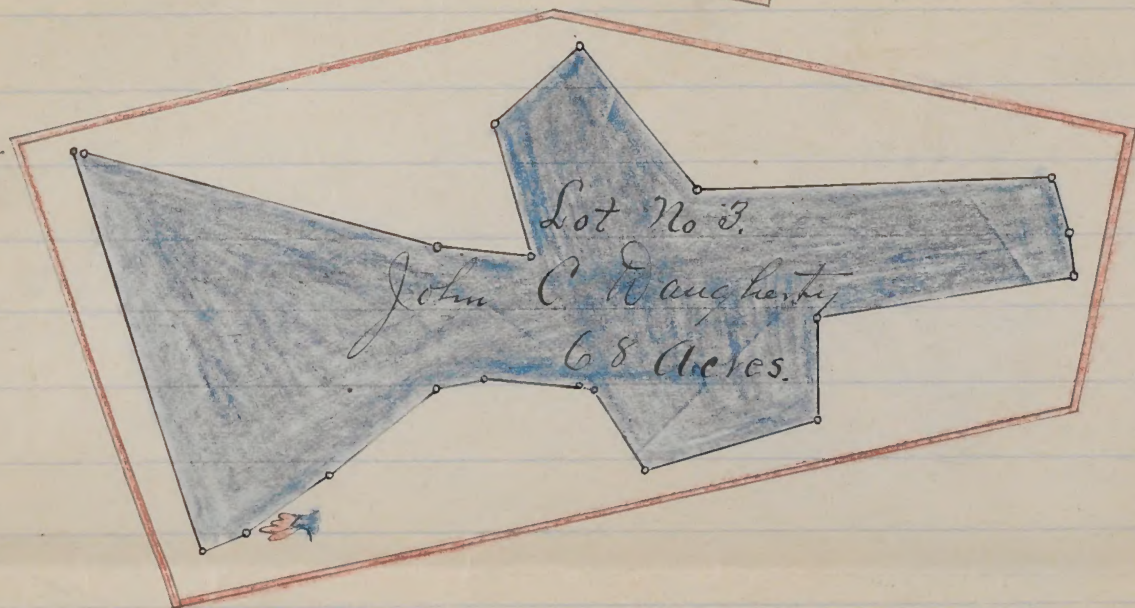 Lot No 3.
John C Daugherty
68 Acres.